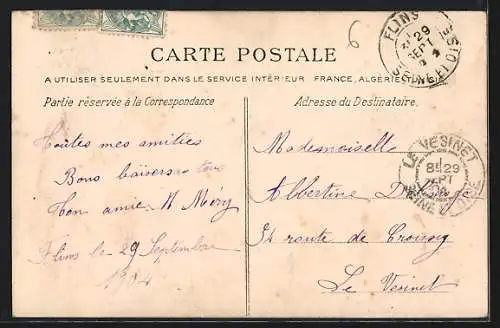 6
FLINS
29
SEPT
SEINE ET OISE
CARTE POSTALE
A UTILISER SEULEMENT DANS LE SERVICE INTÉRIEUR FRANCE, ALGÉRIE
Partie réservée à la Correspondance
Adresse du Destinataire.
Toutes mes amitiés
Bons baisers
Ton amie M Méry
Flins le 29 Septembre
1904
Mademoiselle
Albertine
52 route de Croissy
Le Vésinet
LE VESINET
8E 29
SEPT
04